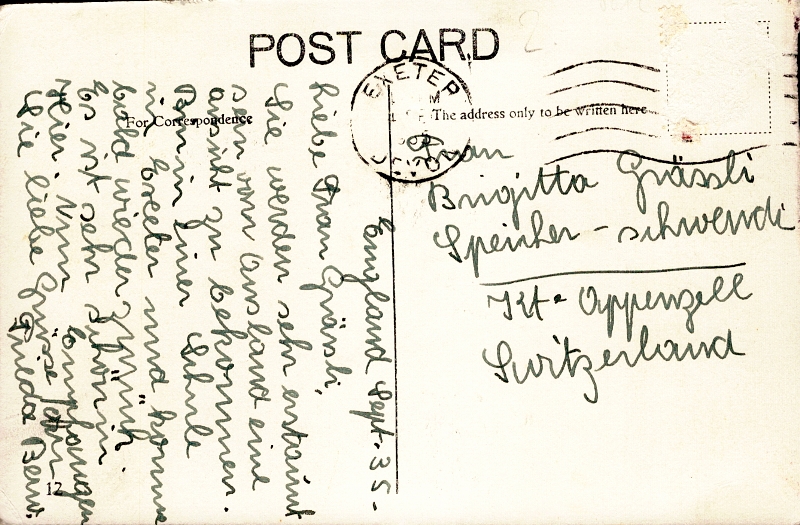 POST CARD
For Correspondence
The address only to be written here
EXETER
England Sept. 35.
Liebe Frau Grässli,
Sie werden sehr erstaunt
sein vom Ausland eine
ansicht zu bekommen.
Bin in einer Schule
in Exeter und komme
bald wieder zurück.
Es ist sehr schön
hier. Nun empfangen
Sie liebe Grüsse
Frieda
Frau
Brigitta Grässli
Speicher - schwendi
Kt. Appenzell
Switzerland
12